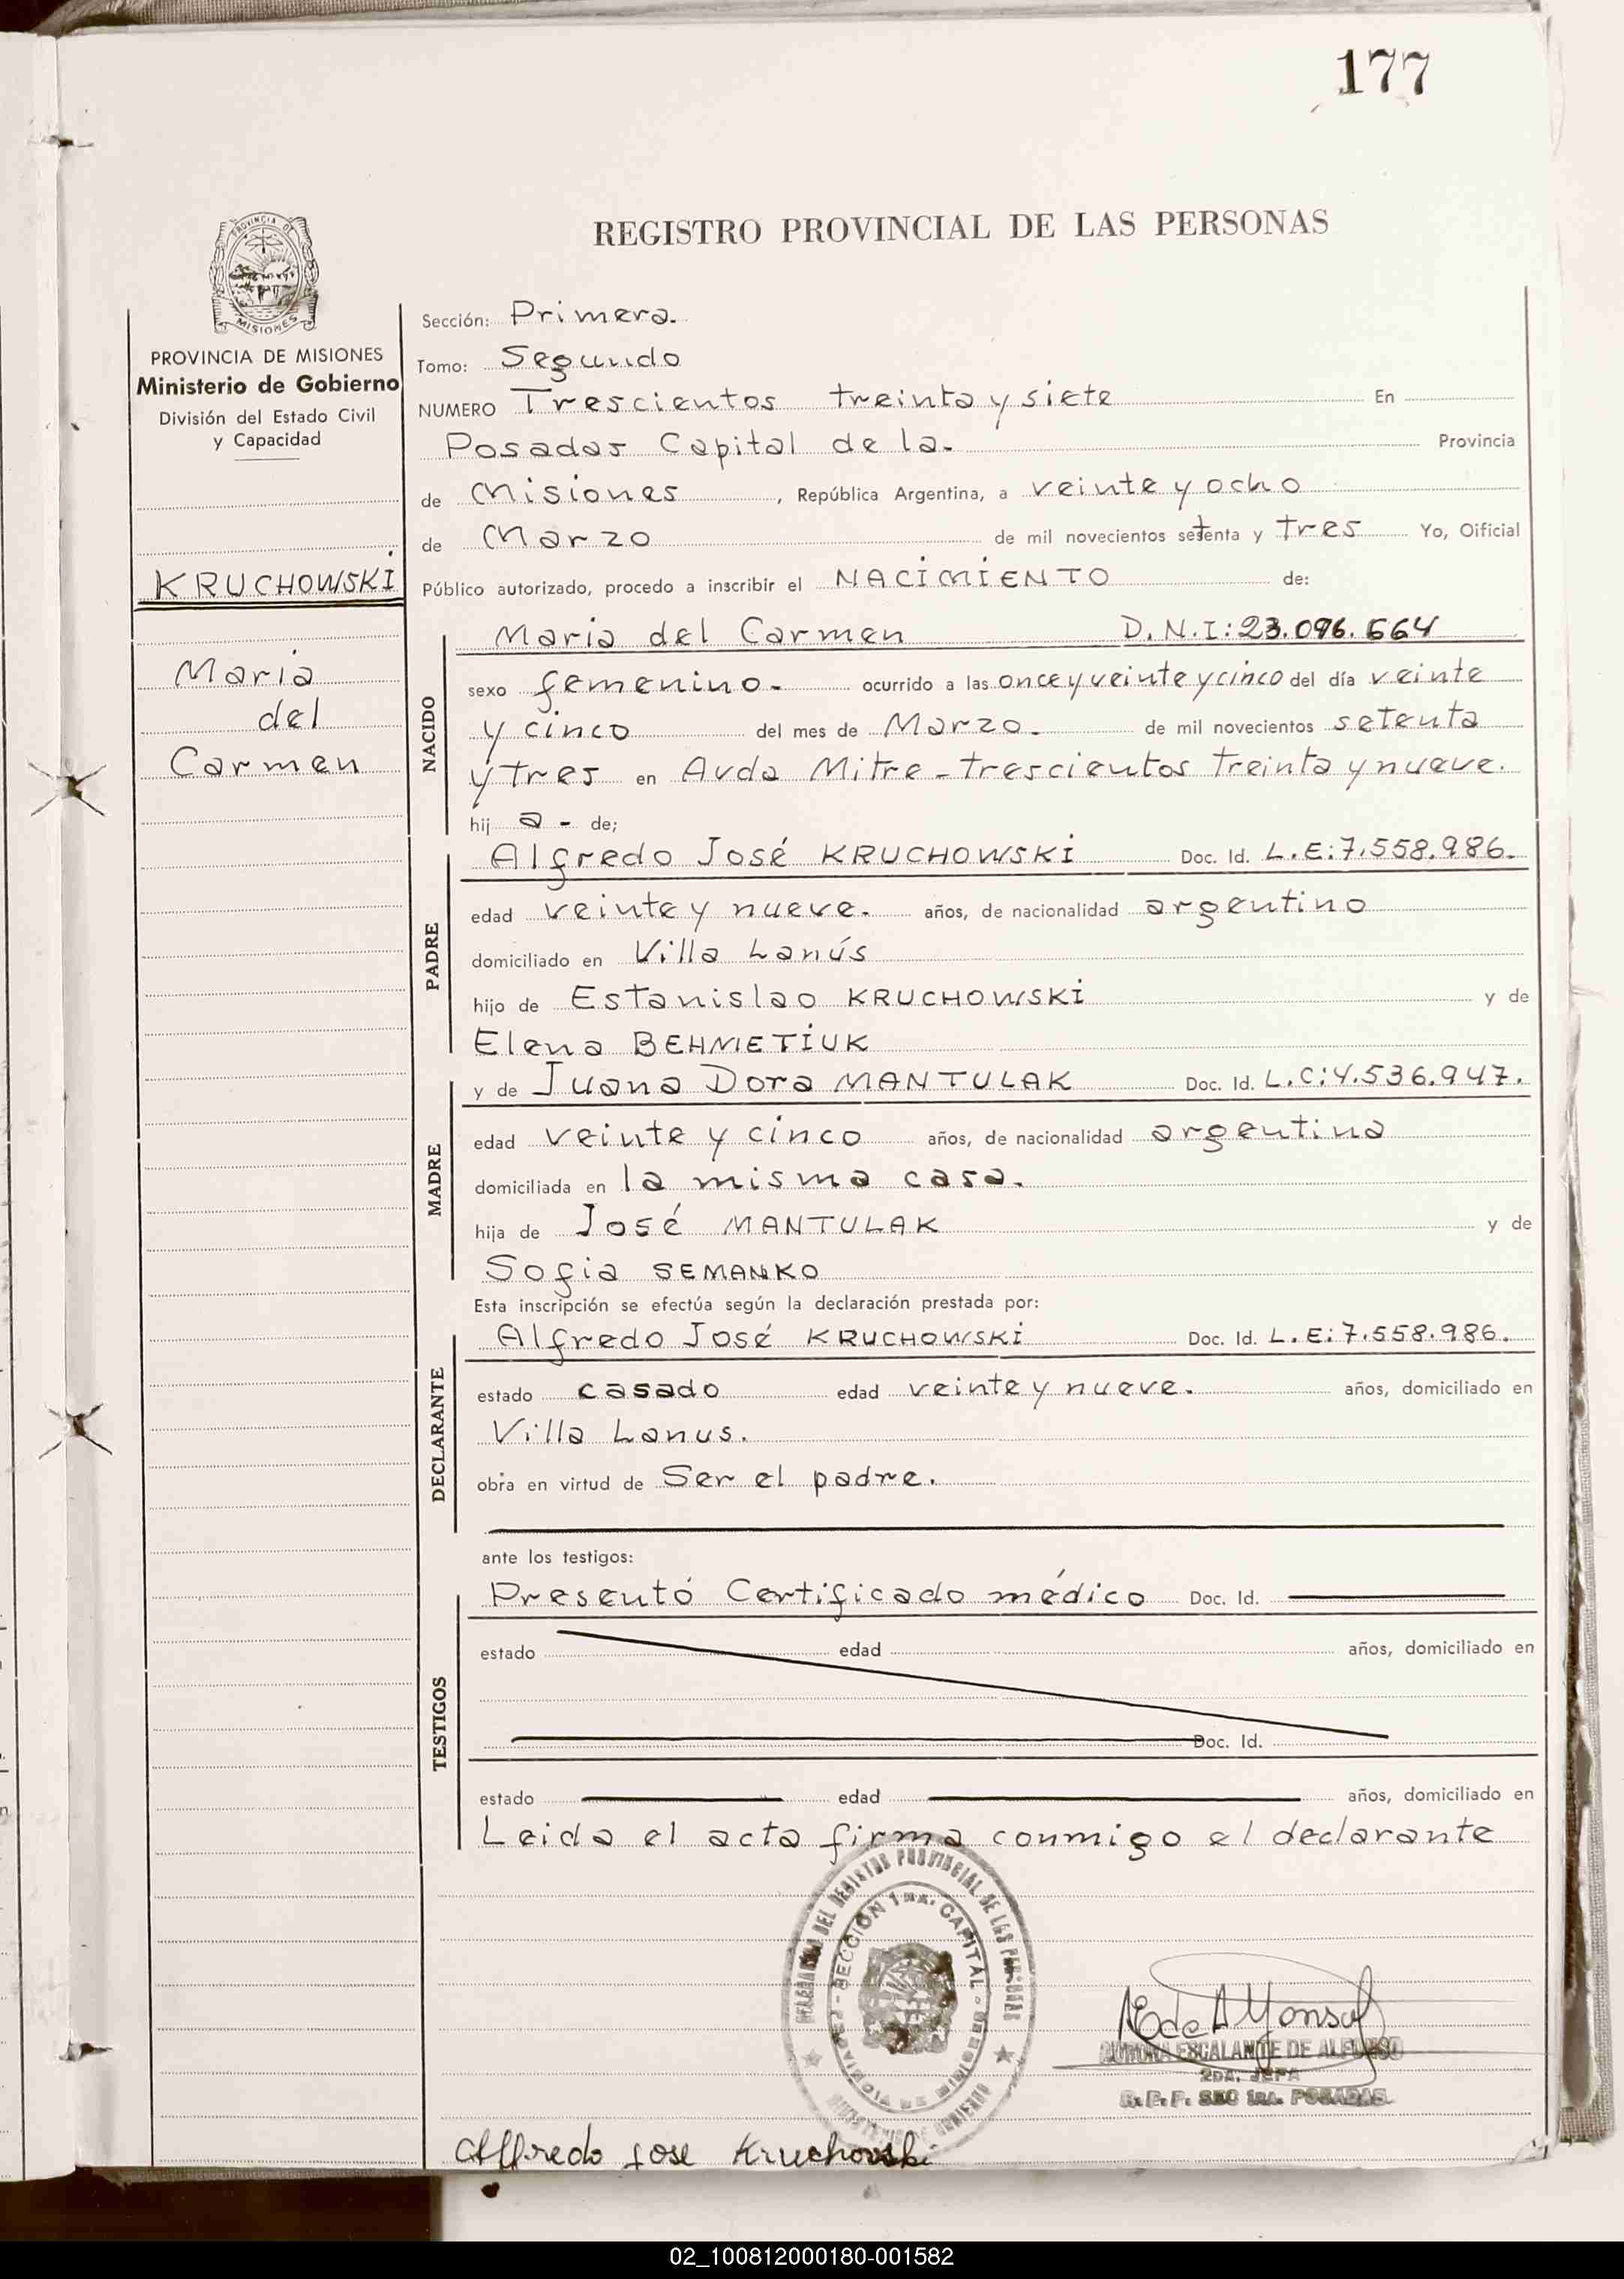 177
REGISTRO PROVINCIAL DE LAS PERSONAS
PROVINCIA DE
MISIONES
PROVINCIA DE MISIONES
Ministerio de Gobierno
División del Estado Civil
y Capacidad
KRUCHOWSKI
Maria
del
Carmen
Sección: Primera.
Tomo: Segundo
NUMERO Trescientos treinta y siete En
Posadas Capital de la. Provincia
de Misiones, República Argentina, a veinte y ocho
de Marzo de mil novecientos setenta y tres Yo, Oificial
Público autorizado, procedo a inscribir el NACIMIENTO de:
NACIDO
Maria del Carmen D.N.I: 23.096.664
sexo femenino. ocurrido a las once y veinte y cinco del día veinte
y cinco del mes de Marzo. de mil novecientos setenta
y tres en Avda Mitre - trescientos treinta y nueve.
hij a - de;
PADRE
Alfredo José KRUCHOWSKI Doc. Id. L.E: 7.558.986.
edad veinte y nueve. años, de nacionalidad argentino
domiciliado en Villa Lanús
hijo de Estanislao KRUCHOWSKI y de
Elena BEHMETIUK
MADRE
y de Juana Dora MANTULAK Doc. Id. L.C: 4.536.947.
edad veinte y cinco años, de nacionalidad argentina
domiciliada en la misma casa.
hija de José MANTULAK y de
Sofia SEMANKO
Esta inscripción se efectúa según la declaración prestada por:
DECLARANTE
Alfredo José KRUCHOWSKI Doc. Id. L.E: 7.558.986.
estado casado edad veinte y nueve. años, domiciliado en
Villa Lanus.
obra en virtud de Ser el padre.
ante los testigos:
TESTIGOS
Presentó Certificado médico Doc. Id.
estado edad años, domiciliado en
Doc. Id.
estado edad años, domiciliado en
Leida el acta firma conmigo el declarante
DELEGACION DEL REGISTRO PROVINCIAL DE LAS PERSONAS
SECCION 1ra. CAPITAL
PROVINCIA DE MISIONES
MINISTERIO DE GOBIERNO
AURORA ESCALANTE DE ALFONSO
2DA. JEFA
R. P. P. SEC 1RA. POSADAS
Alfredo jose Kruchowski
02_100812000180-001582